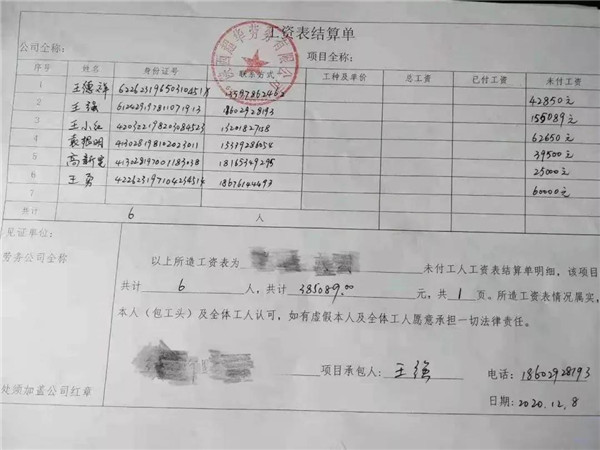 工资表结算单
公司全称: 项目全称:
序号 姓名 身份证号 联系方式 工种及单价 总工资 已付工资 未付工资
1 王德祥 42850元
2 王强 18602928193 155089元
3 王小红 420302198203084523 62650元
4 袁根明 413028198102023011 39500元
5 高新宽 413028197001183038 18165349295 25000元
6 王勇 18676144493 60000元
7
共计 6 人
见证单位:
劳务公司全称
以上所造工资表为 未付工人工资表结算单明细，该项目
共计 6 人，共计 385089.00 元，共 1 页。所造工资表情况属实，
本人（包工头）及全体工人认可，如有虚假本人及全体工人愿意承担一切法律责任。
项目承包人: 王强 电话: 18602928193
处须加盖公司红章
日期: 2020.12.8
陕西超华劳务有限公司